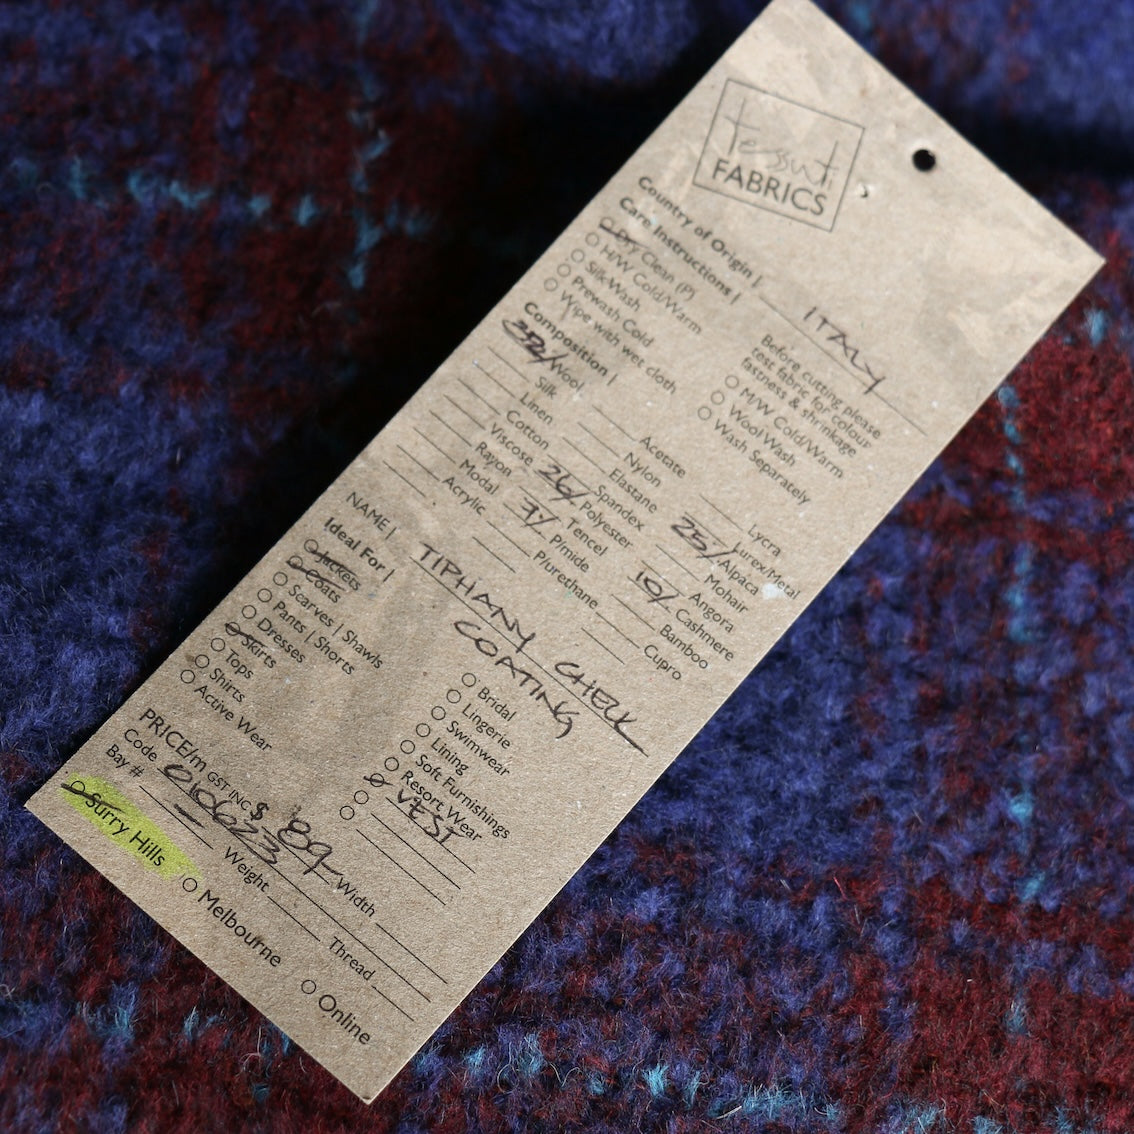 tessuti
FABRICS
Country of Origin | ITALY
Care Instructions |
Dry Clean (P)
H/W Cold/Warm
Silk Wash
Prewash Cold
Wipe with wet cloth
Before cutting please
test fabric for colour
fastness & shrinkage
M/W Cold/Warm
Wool Wash
Wash Separately
Composition |
Wool
Silk
Linen
Cotton
Viscose
Rayon
Modal
Acrylic
Acetate
Nylon
Elastane
Spandex
26% Polyester
Tencel
3% P/mide
P/urethane
Lycra
Lurex/Metal
25% Alpaca
Mohair
Angora
10% Cashmere
Bamboo
Cupro
NAME | TIPHANY CHECK
COATING
Ideal For |
Jackets
Coats
Scarves | Shawls
Pants | Shorts
Dresses
Skirts
Tops
Shirts
Active Wear
Bridal
Lingerie
Swimwear
Lining
Soft Furnishings
Resort Wear
VEST
PRICE/m GST INC $ 89
Code 010623 Width
Bay # Weight Thread
Surry Hills Melbourne Online